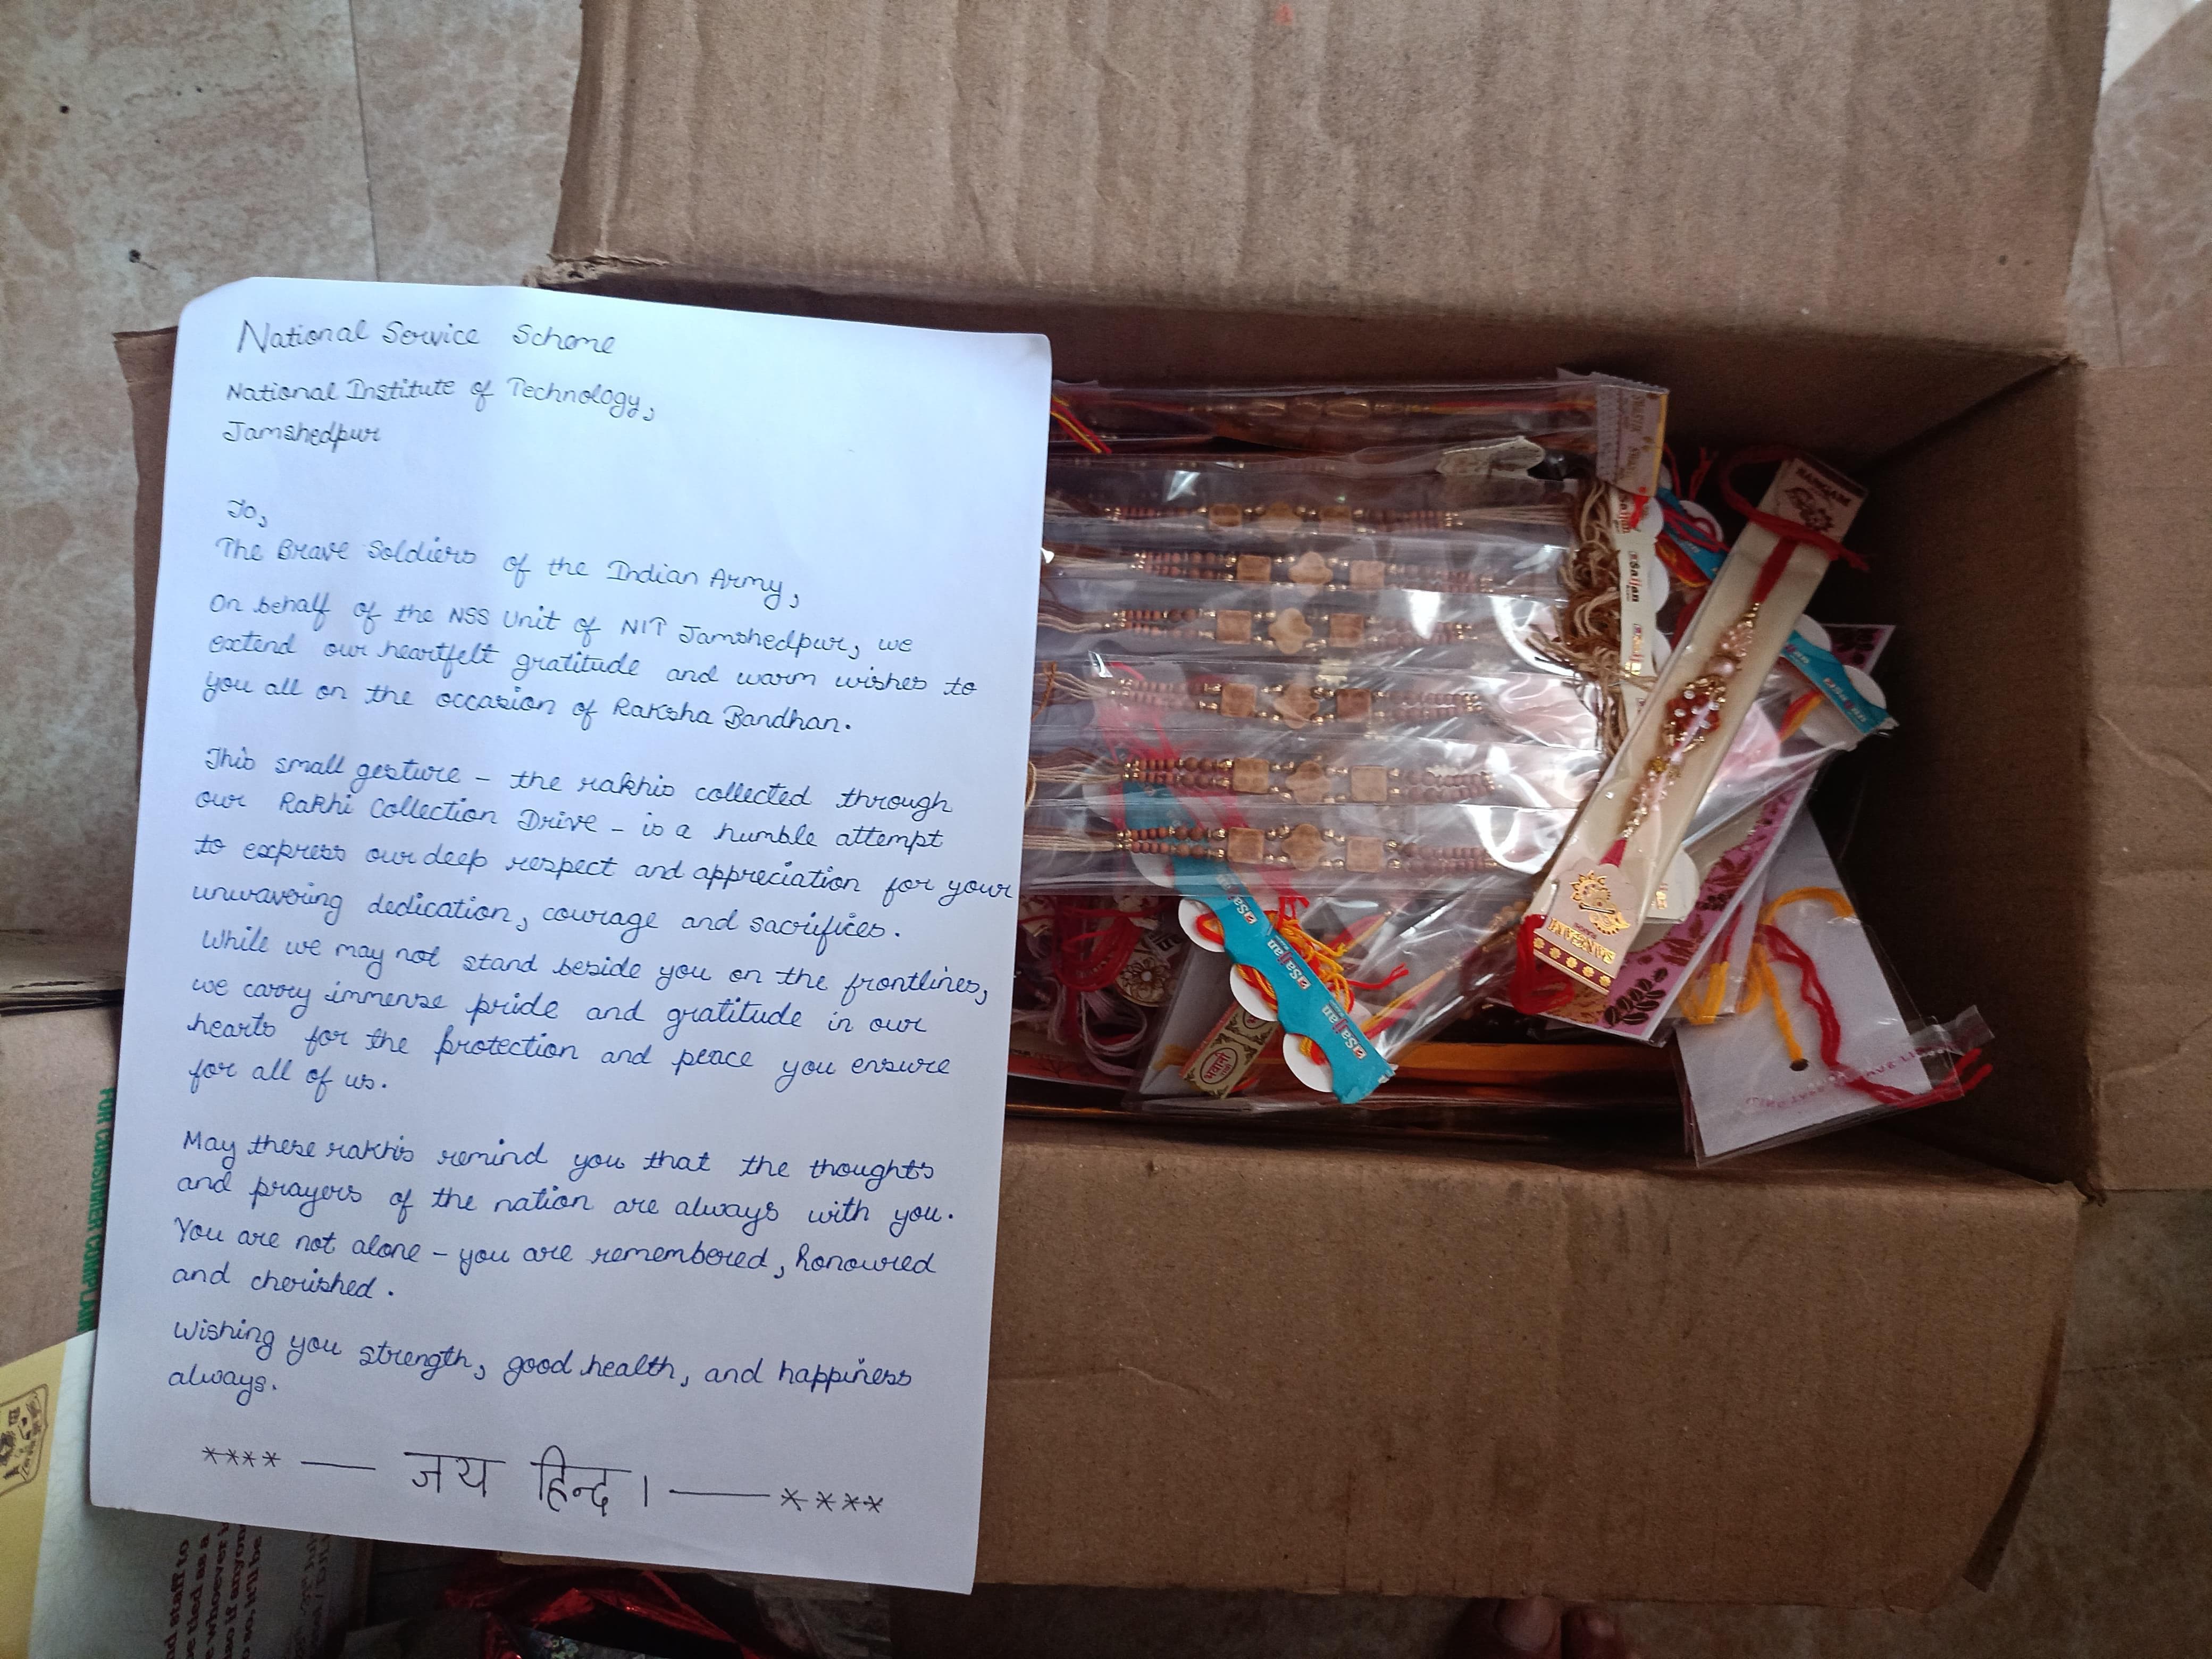 National Service Scheme
National Institute of Technology,
Jamshedpur
To,
The Brave Soldiers of the Indian Army,
On behalf of the NSS Unit of NIT Jamshedpur, we
extend our heartfelt gratitude and warm wishes to
you all on the occasion of Raksha Bandhan.
This small gesture – the rakhis collected through
our Rakhi Collection Drive – is a humble attempt
to express our deep respect and appreciation for your
unwavering dedication, courage and sacrifices.
While we may not stand beside you on the frontlines,
we carry immense pride and gratitude in our
hearts for the protection and peace you ensure
for all of us.
May these rakhis remind you that the thoughts
and prayers of the nation are always with you.
You are not alone – you are remembered, honoured
and cherished.
Wishing you strength, good health, and happiness
always.
**** — जय हिन्द। — ****
FOR CONSUMER COMPLAIN
Sajjan
Sajjan
Sajjan
Sajjan
Sajjan
SANGAM
SANGAM
nd staff to